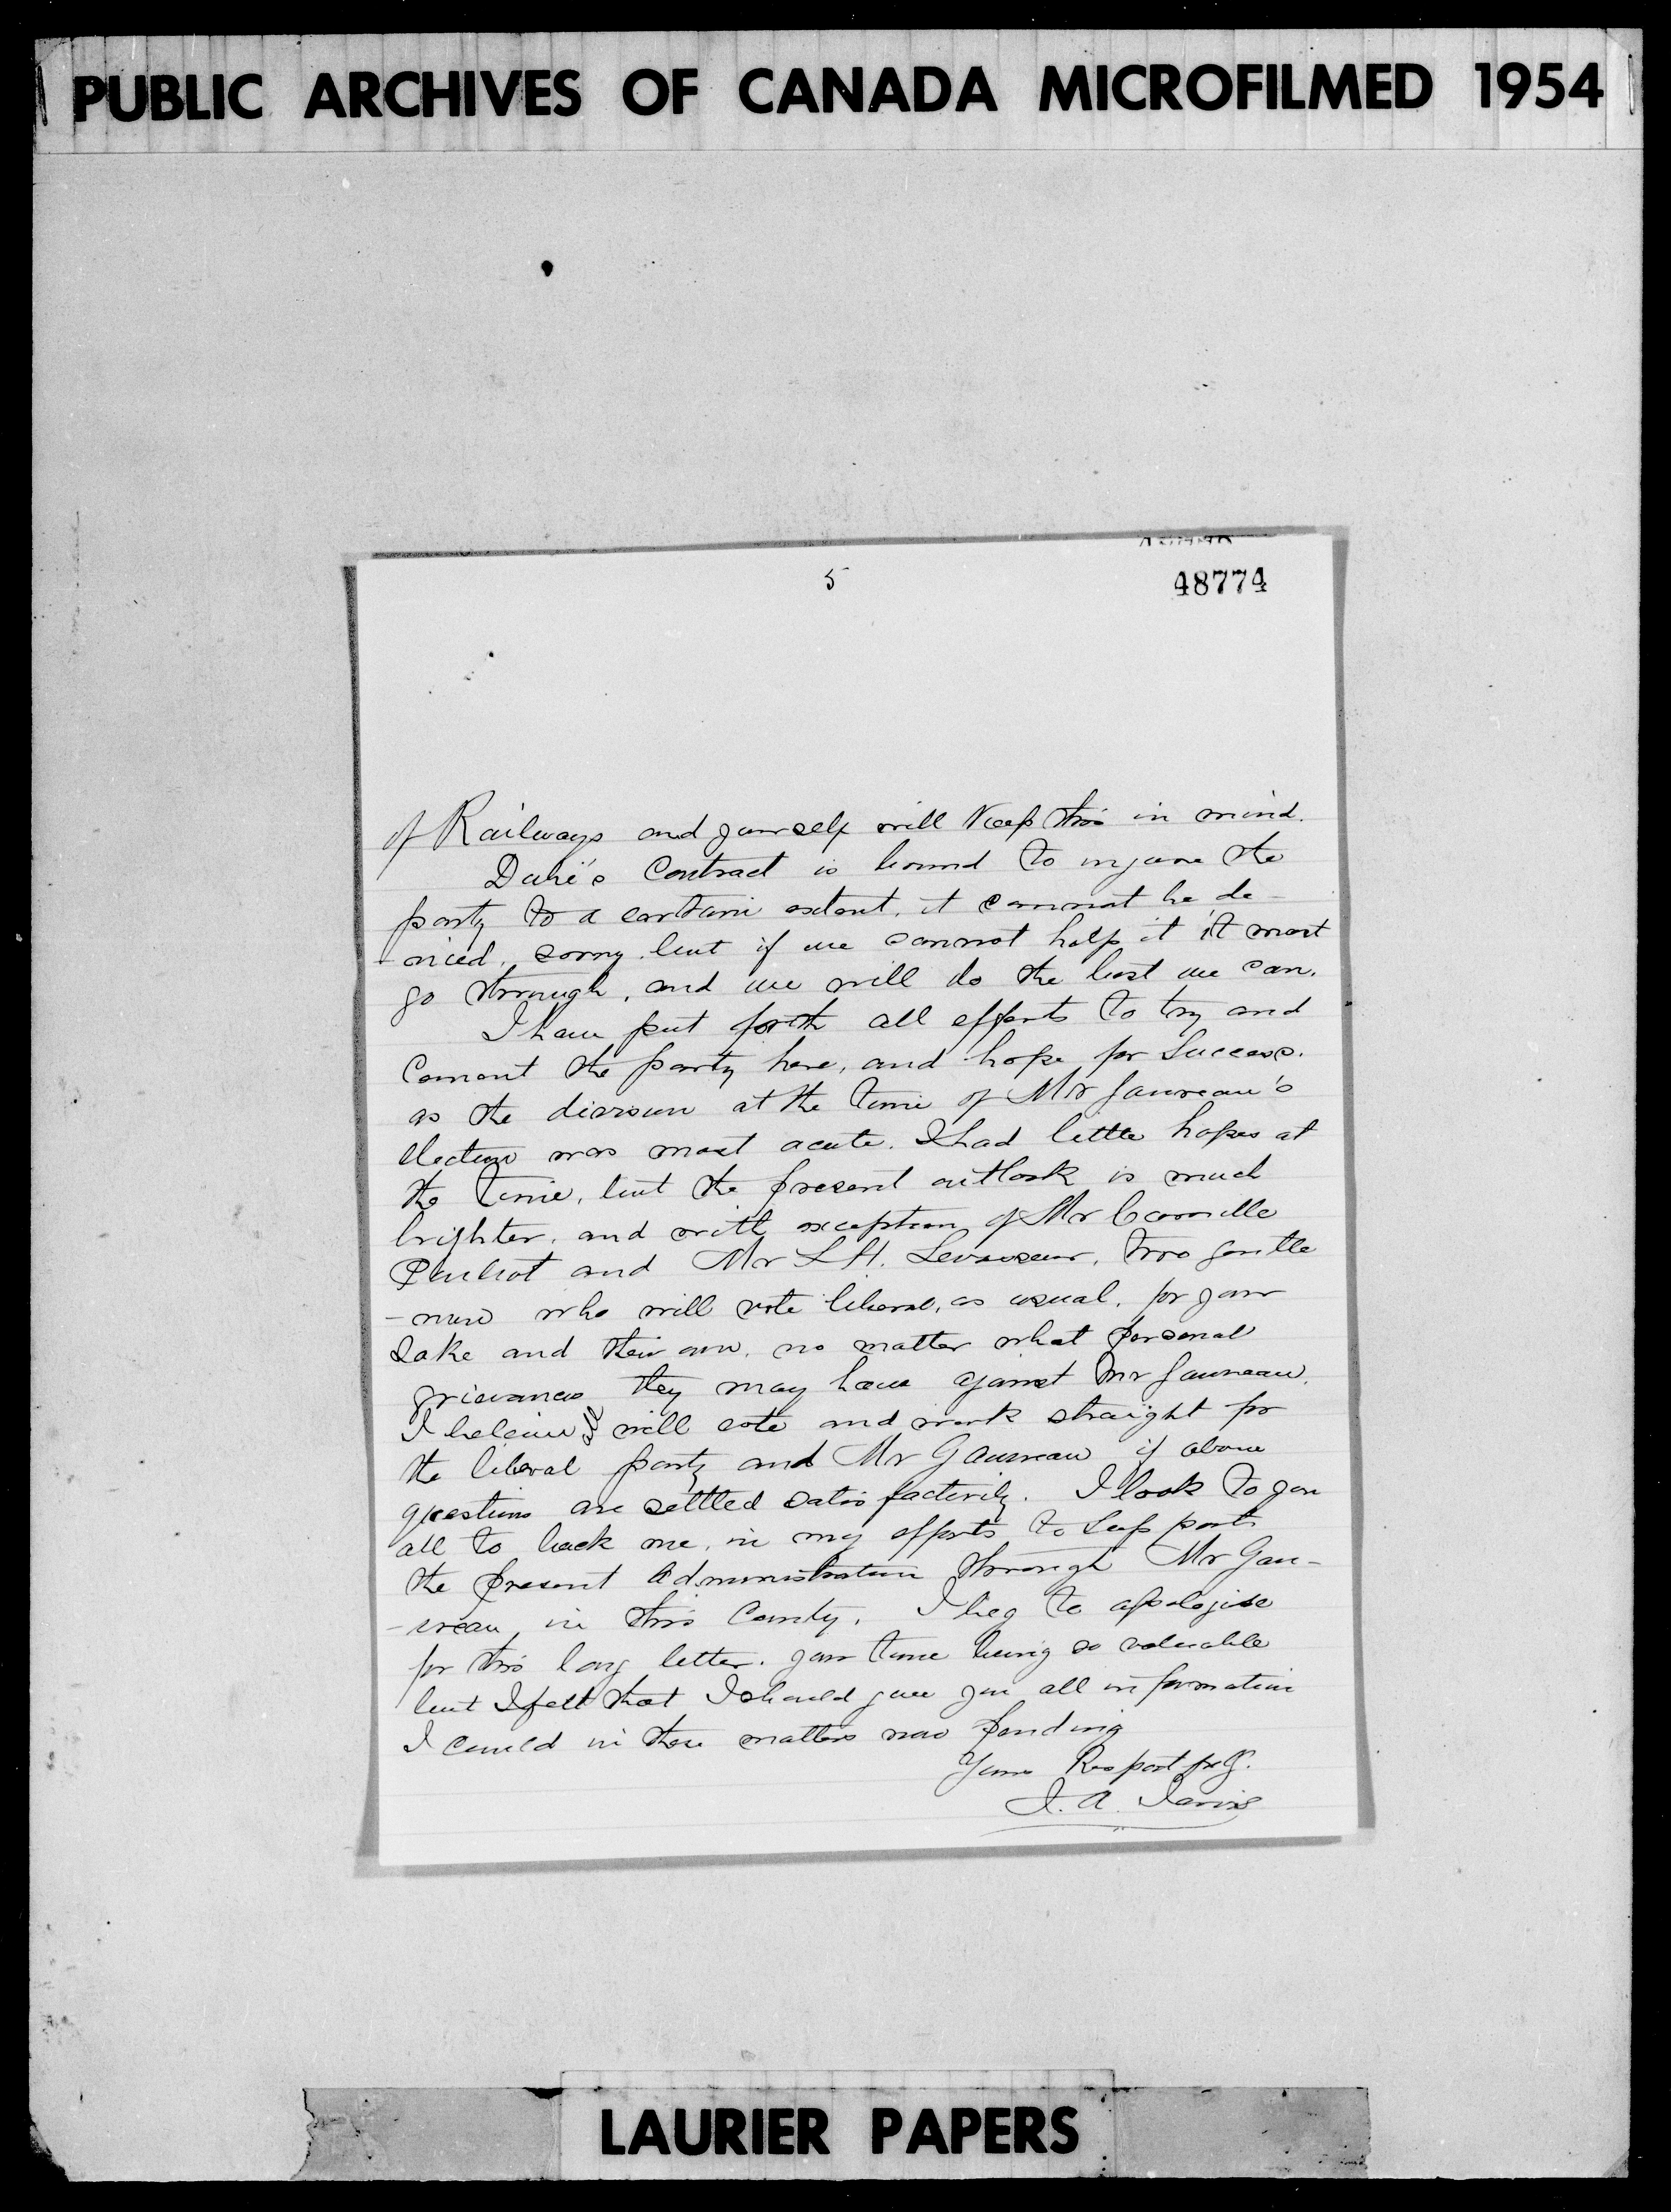 PUBLIC ARCHIVES OF CANADA MICROFILMED 1954
5
48774
of Railways and yourself will Keep this in mind.
Dubé's Contract is bound to injure the
party to a certain extent, it cannot be de-
-nied, sorry but if we cannot help it it must
go through, and we will do the best we can.
I have put forth all efforts to try and
Cement the party here, and hope for Success.
as the division at the time of Mr Gauvreau's
election was most acute. I had little hopes at
the time, but the present outlook is much
brighter, and with exception of Mr Camille
Pouliot and Mr L H. Levasseur, two gentle
-men who will vote liberal, as usual, for your
Sake and their own, no matter what personal
grievances they may have against Mr Gauvreau.
I believe all will vote and work straight for
the liberal party and Mr Gauvreau if above
questions are settled satisfactorily. I look to you
all to back me, in my efforts to Support
the present Administration through Mr Gau-
-vreau, in this County. I beg to apologise
for this long letter. your time being so valuable
but I felt that I should give you all information
I could in these matters now pending
Yours Respectfully.
J. A. Jarvis
LAURIER PAPERS